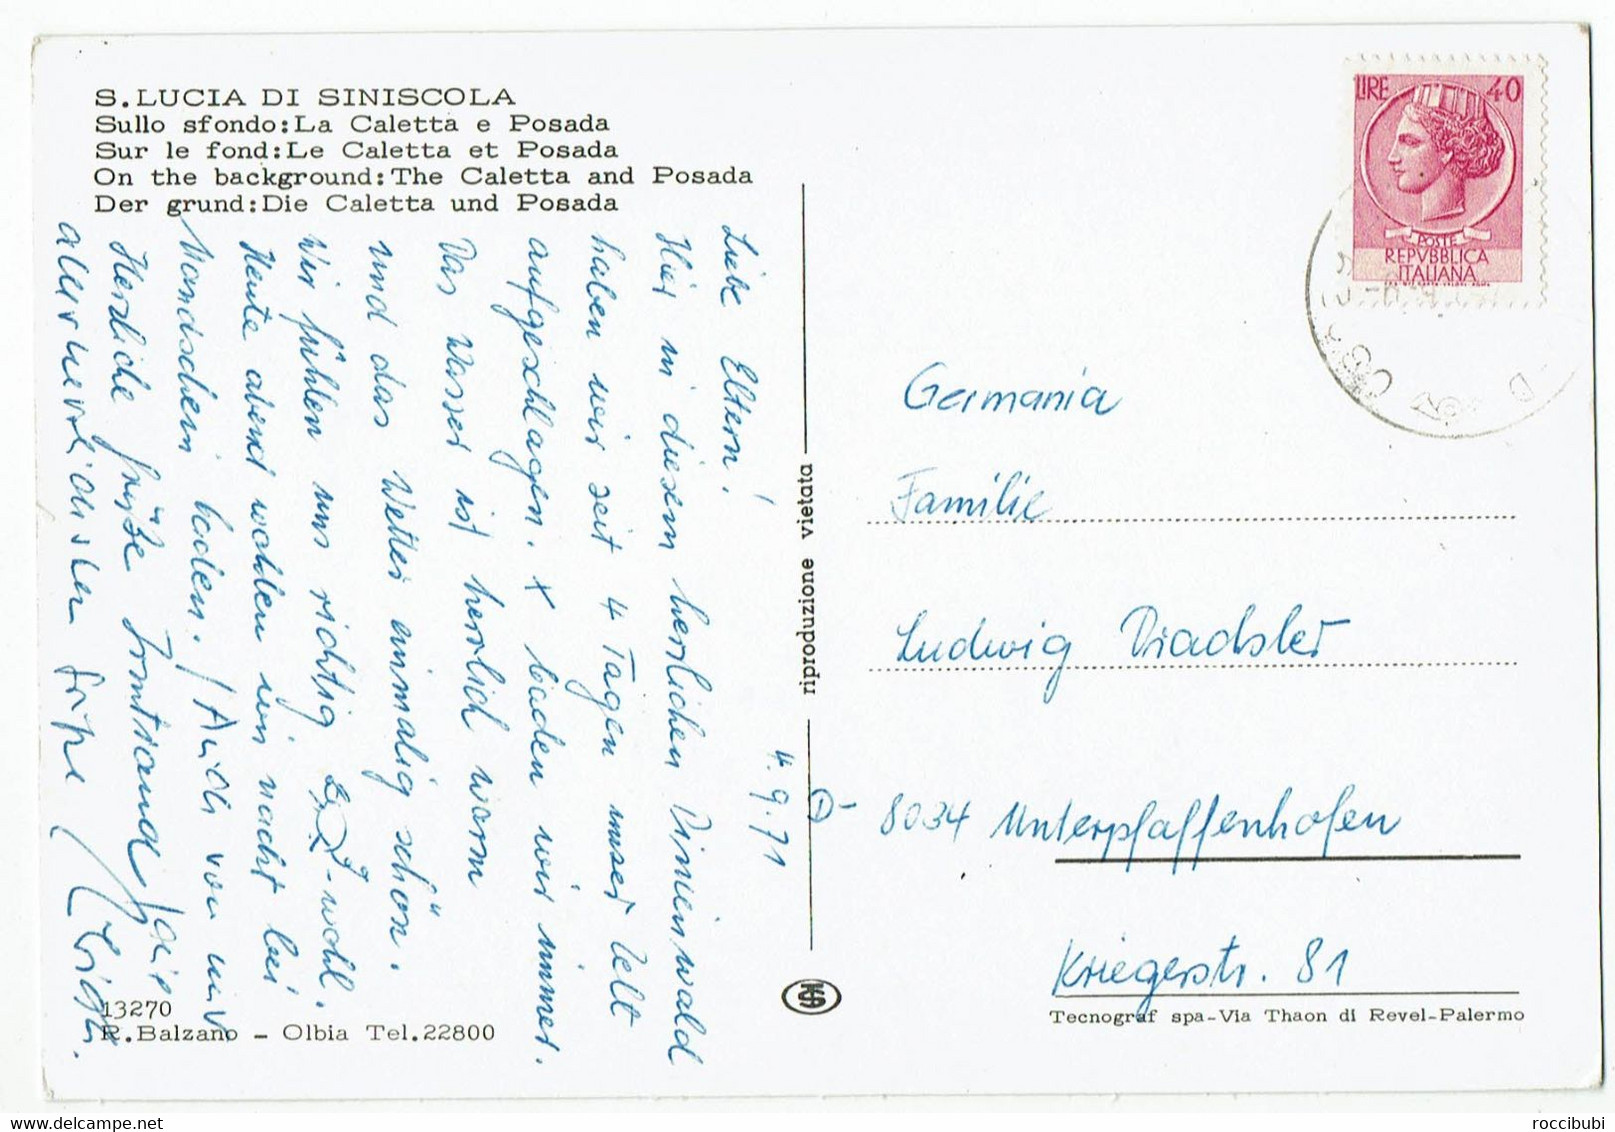 S.LUCIA DI SINISCOLA
Sullo sfondo:La Caletta e Posada
Sur le fond:Le Caletta et Posada
On the background:The Caletta and Posada
Der grund:Die Caletta und Posada
4.9.71
Liebe Eltern!
Hier in diesem herrlichen Pinienwald
haben wir seit 4 Tagen unser Zelt
aufgeschlagen. x baden wir immer.
Das Wasser ist herrlich warm
und das Wetter einmalig schön.
Wir fühlen uns richtig -wohl.
Heute abend wollen wir nacht bei
Mondschein baden. / Auch von mir
Herzliche Grüße
allerherzlichsten Grüße
13270
R.Balzano - Olbia Tel.22800
riproduzione vietata
LIRE 40
POSTE
REPVBBLICA
ITALIANA
Germania
Familie
Ludwig
D-
8034 Unterpfaffenhofen
Kriegerstr. 81
Tecnograf spa-Via Thaon di Revel-Palermo
roccibubi